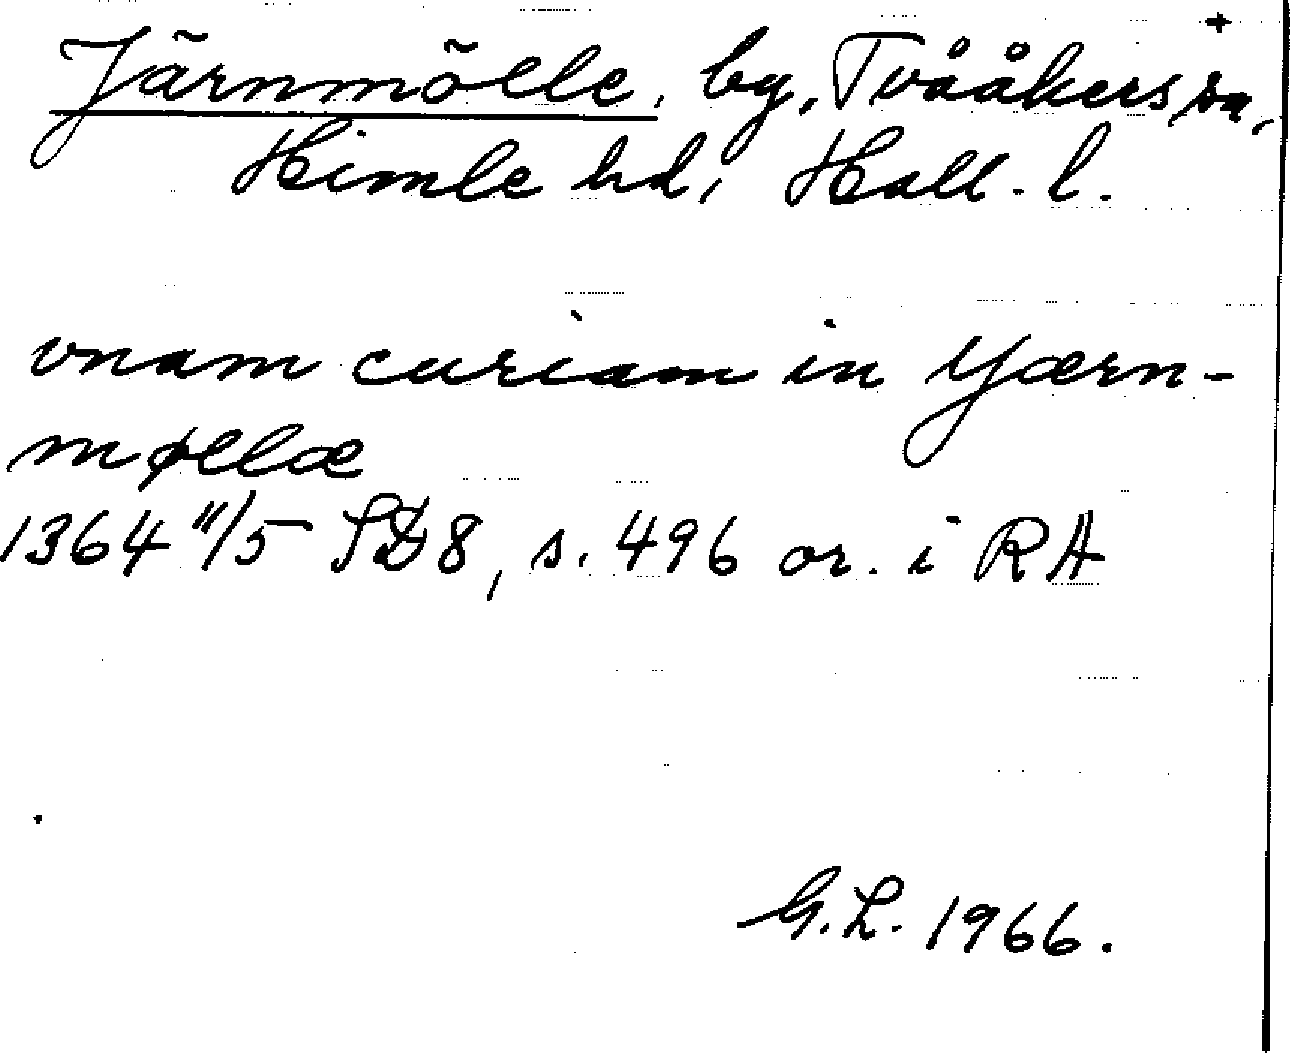 Järnmölle, by, Tvååkers sn,
Himle hd, Hall. l.
vnam curiam in Yærn-
møllæ
1364 11/5 SD 8, s. 496 or. i RA
G.L. 1966.